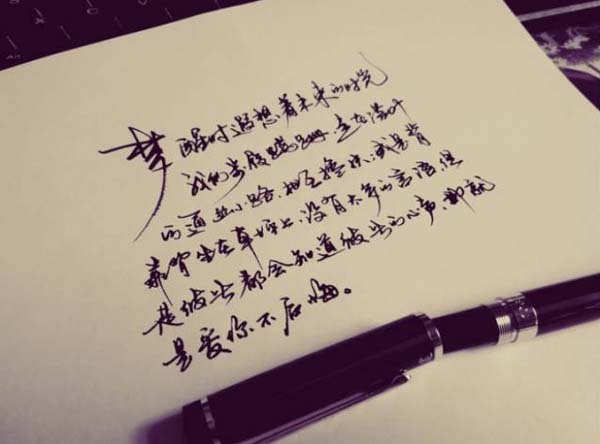 梦醒时遥想着未来的时光
我们步履蹒跚,走在落叶
的通幽小路,相互搀扶,或是背
靠背坐在草坪上,没有太多的言语,但
是彼此都会知道彼此的心声,那就
是爱你不后悔。